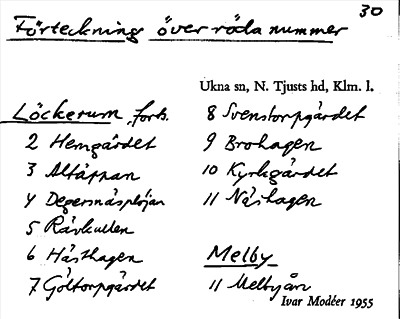 30
Förteckning över röda nummer
Ukna sn, N. Tjusts hd, Klm. l.
Löckerum, forts.
2 Hemgärdet
3 Altäppan
4 Degernäsplöjan
5 Rävkullen
6 Hästhagen
7 Göltorpgärdet
8 Svenstorpgärdet
9 Brohagen
10 Kyrkgärdet
11 Näshagen
Melby
11 Melbyån
Ivar Modéer 1955